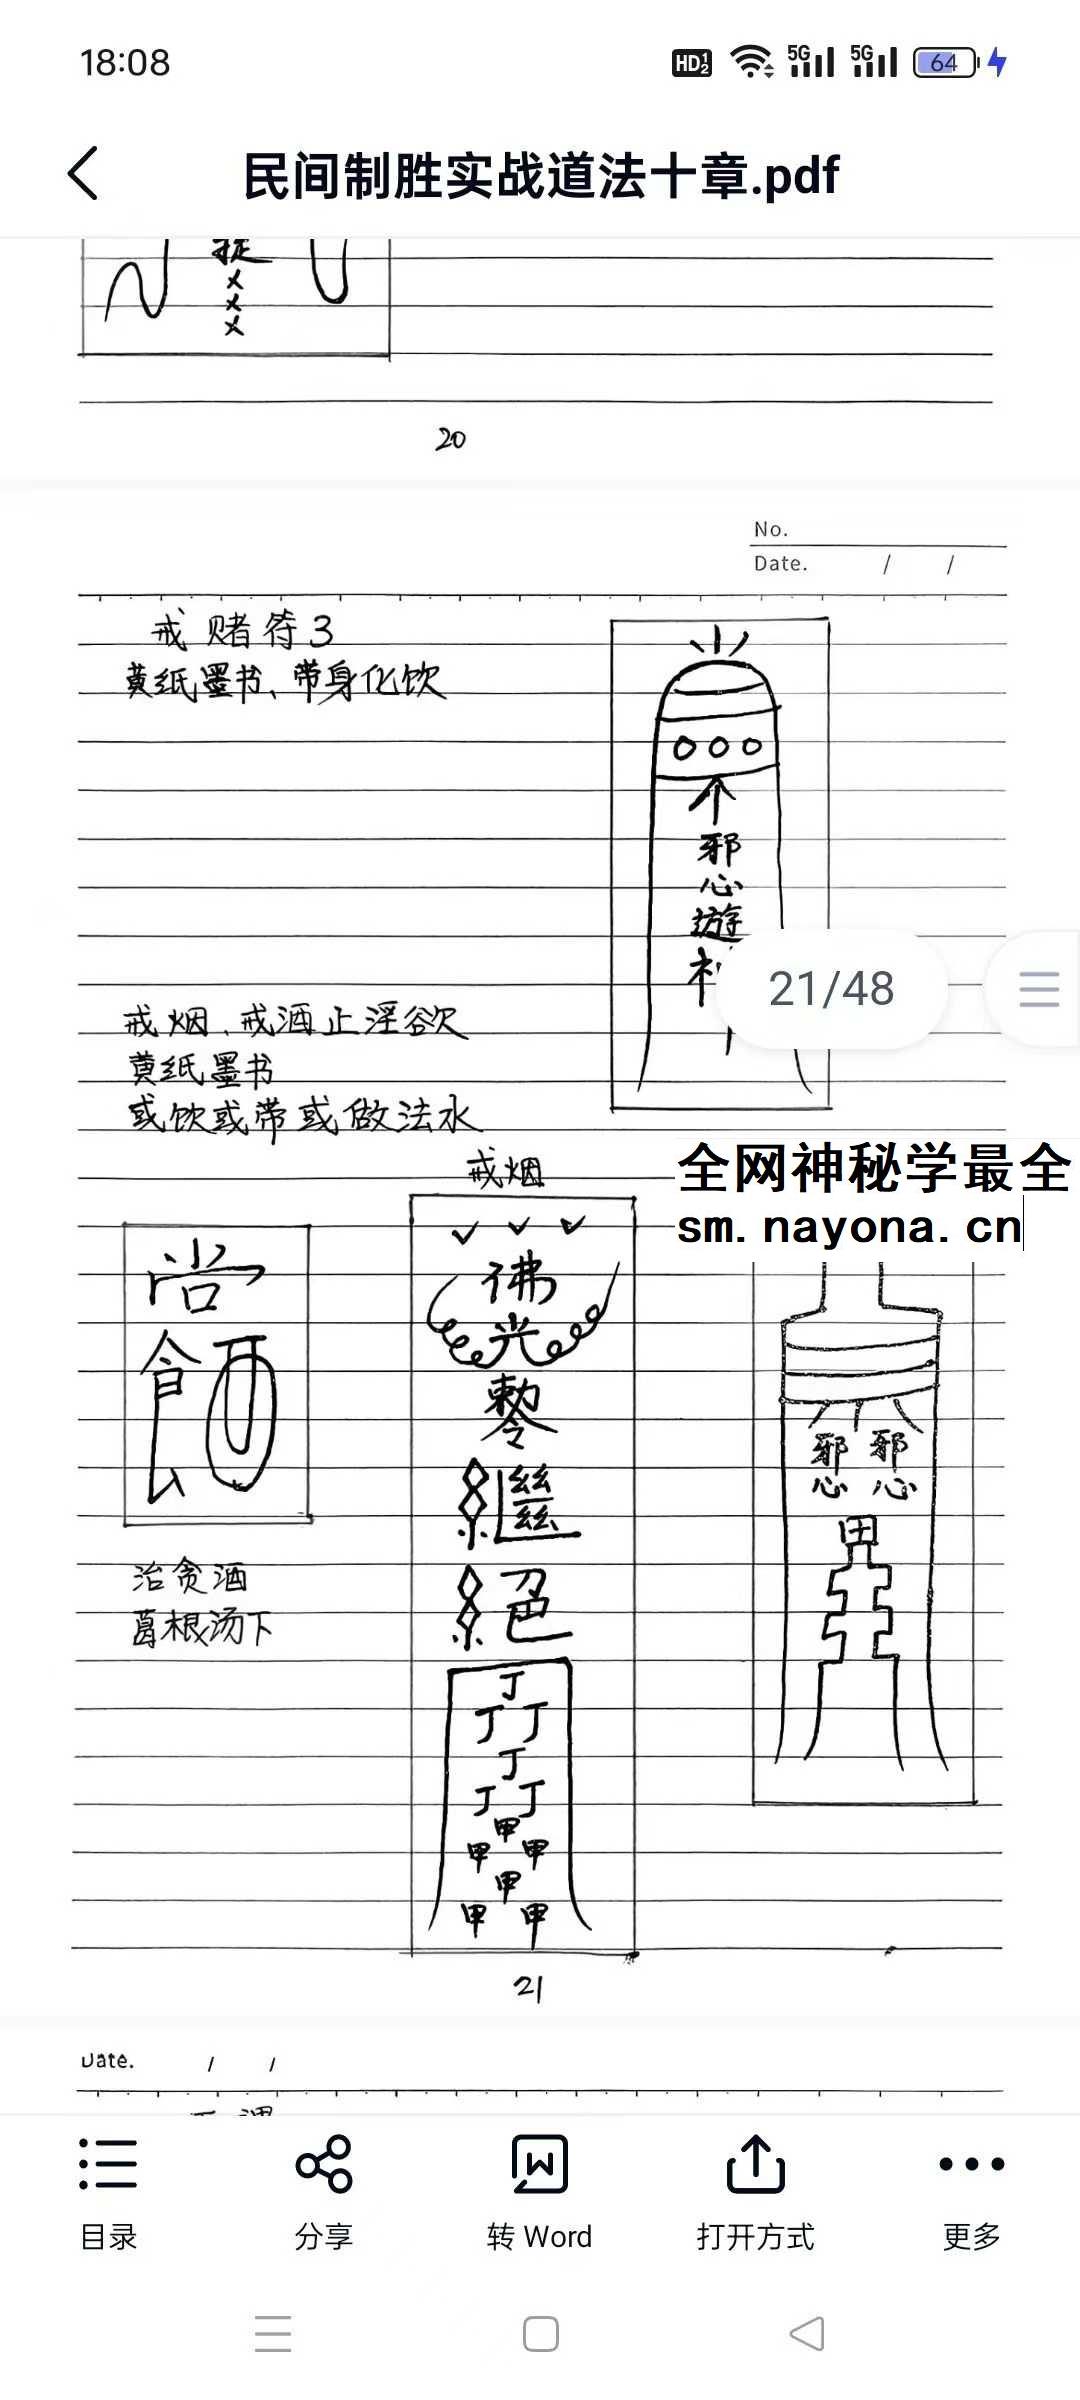 18:08
HD 1 2 5G 5G 64
民间制胜实战道法十章.pdf
捉
×
×
×
20
No.
Date. / /
戒赌符3
黄纸墨书、带身化饮
个
邪
心
遊
21/48
戒烟、戒酒止淫欲
黄纸墨书
或饮或带或做法水
戒烟
全网神秘学最全
sm.nayona.cn
佛
光
勅令
繼
絕
丁
丁 丁
丁
丁 丁
甲
甲 甲
甲
甲 甲
邪 邪
心 心
田
治贪酒
葛根汤下
21
Date. / /
目录
分享
转 Word
打开方式
更多